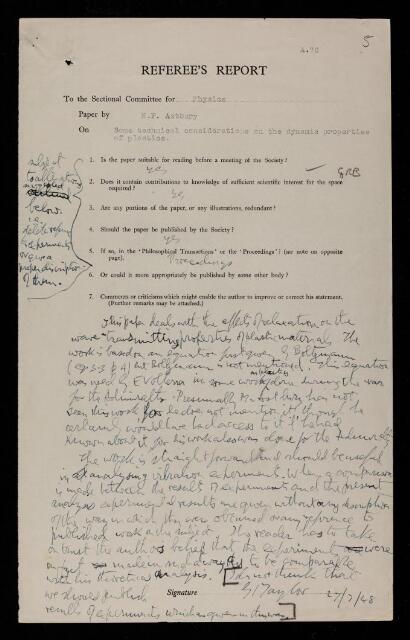 A.70
5
REFEREE'S REPORT
To the Sectional Committee for Physics
Paper by N.F. Astbury
On Some technical considerations on the dynamic properties
of plastics.
1. Is the paper suitable for reading before a meeting of the Society?
yes
GRB
2. Does it contain contributions to knowledge of sufficient scientific interest for the space
required?
yes
3. Are any portions of the paper, or any illustrations, redundant?
4. Should the paper be published by the Society?
yes
5. If so, in the 'Philosophical Transactions' or the 'Proceedings'? (see note on opposite
page).
Proceedings
6. Or could it more appropriately be published by some other body?
7. Comments or criticisms which might enable the author to improve or correct his statement.
(Further remarks may be attached.)
subject
to alterations
suggested
below
i.e.
delete refs
to experiments
or give a
proper description
of them.
This paper deals with the effects of relaxation on the
wave transmitting properties of plastic materials. The
work is based on an equation first given by Boltzmann
(eq 3.3 p 4) but Boltzmann is not mentioned. This equation
was used by E Volterra in some work done during the war
for the Admiralty. Presumably Mr Astbury has not
seen this work for he does not mention it though he
certainly would have had access to it if he had
known about it, for his work also was done for the Admiralty
The work is straightforward and should be useful
in analysing vibration experiments. When a comparison
is made between the result of experiments and the present
analysis experimental results are given without any description
of the way in which they were obtained or any reference to
published work on the subject. The reader has to take
on trust the author's belief that the experiments were
made in such a way as to be comparable
with his theoretical analysis. [I do not think that
we should publish
results of experiments which are given in this way]
Signature G I Taylor 27/7/48